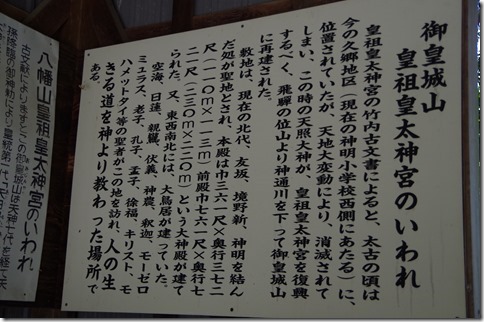 御皇城山
皇祖皇太神宮のいわれ
皇祖皇太神宮の竹内古文書によると、太古の頃は
今の久郷地区(現在の神明小学校西側にあたる)に、
位置されていたが、天地大変動により、消滅されて
しまい、この時の天照大神が、皇祖皇太神宮を復興
するべく、飛騨の位山より神通川を下って御皇城山
に再建された。
敷地は、現在の北代、友坂、境野新、神明を結ん
だ処が聖地とされ、本殿は巾三六一尺×奥行三七二
尺(一一〇cm×一一三m)前殿巾七六一尺×奥行七
二一尺(二三〇cm×二二〇m)という大神殿が建て
られた。又、東西南北には、大鳥居が建っていた。
空海、日蓮、親鸞、伏義、神農、釈迦、モーゼロ
ミュラス、老子、孔子、孟子、徐福、キリスト、モ
ハメットタイ等の聖者がこの地を訪れ、人の生
きる道を神より教わった場所で
ある。
八幡山皇祖皇太神宮のいわれ
古文献によりますとこの御皇城山は天神七代を経て天
孫降臨の御神勅により皇統第一代